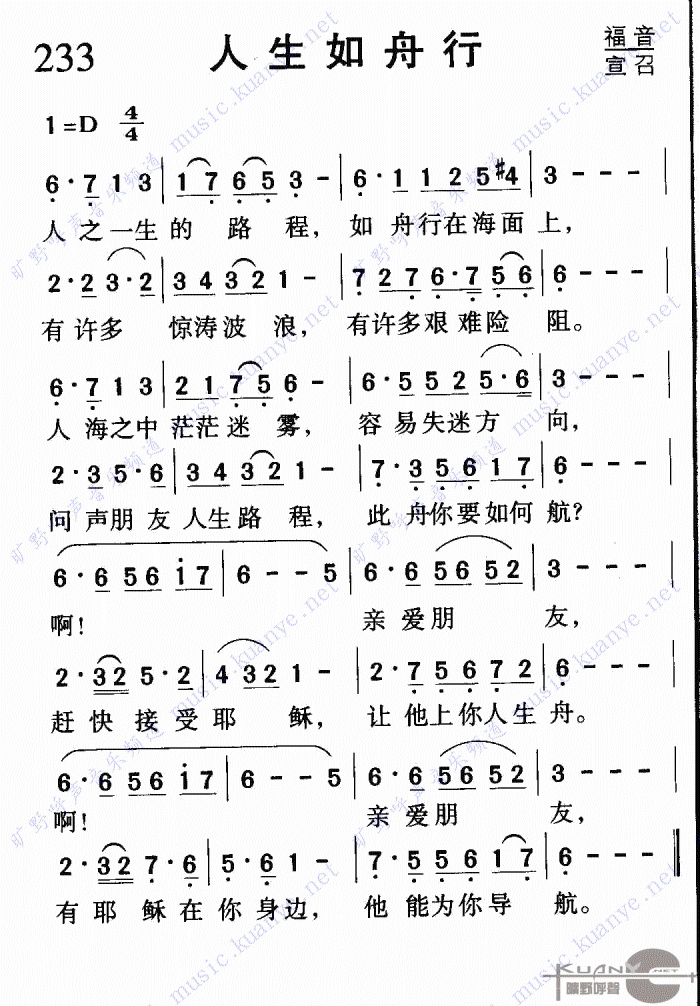 233 人生如舟行 福音
宣召
1=D 4/4
6·7 1 3 | 1 7 6 5 3 - | 6·1 1 2 5 #4 | 3 - - - |
人之一生的 路 程, 如 舟行在海面上,
2·2 3·2 | 3 4 3 2 1 - | 7 2 7 6·7 5 6 | 6 - - - |
有许多 惊涛波 浪, 有许多艰难险 阻。
6·7 1 3 | 2 1 7 5 6 - | 6·5 5 2 5·6 | 3 - - - |
人 海之中茫茫迷 雾, 容易失迷方 向,
2·3 5·6 | 3 4 3 2 1 - | 7·3 5 6 1 7 | 6 - - - |
问 声朋友人生路 程, 此 舟你要如何航?
6·6 5 6 1 7 | 6 - - 5 | 6·6 5 6 5 2 | 3 - - - |
啊! 亲 爱朋 友,
2·3 2 5·2 | 4 3 2 1 - | 2·7 5 6 7 2 | 6 - - - |
赶快接受耶 稣, 让他上你人生舟。
6·6 5 6 1 7 | 6 - - 5 | 6·6 5 6 5 2 | 3 - - - |
啊! 亲 爱朋 友,
2·3 2 7·6 | 5·6 1 - | 7·5 5 6 1 7 | 6 - - - ‖
有耶 稣在你身边, 他 能为你导 航。
旷野呼声音乐频道 music.kuanye.net
KUANYE.NET
旷野呼聲